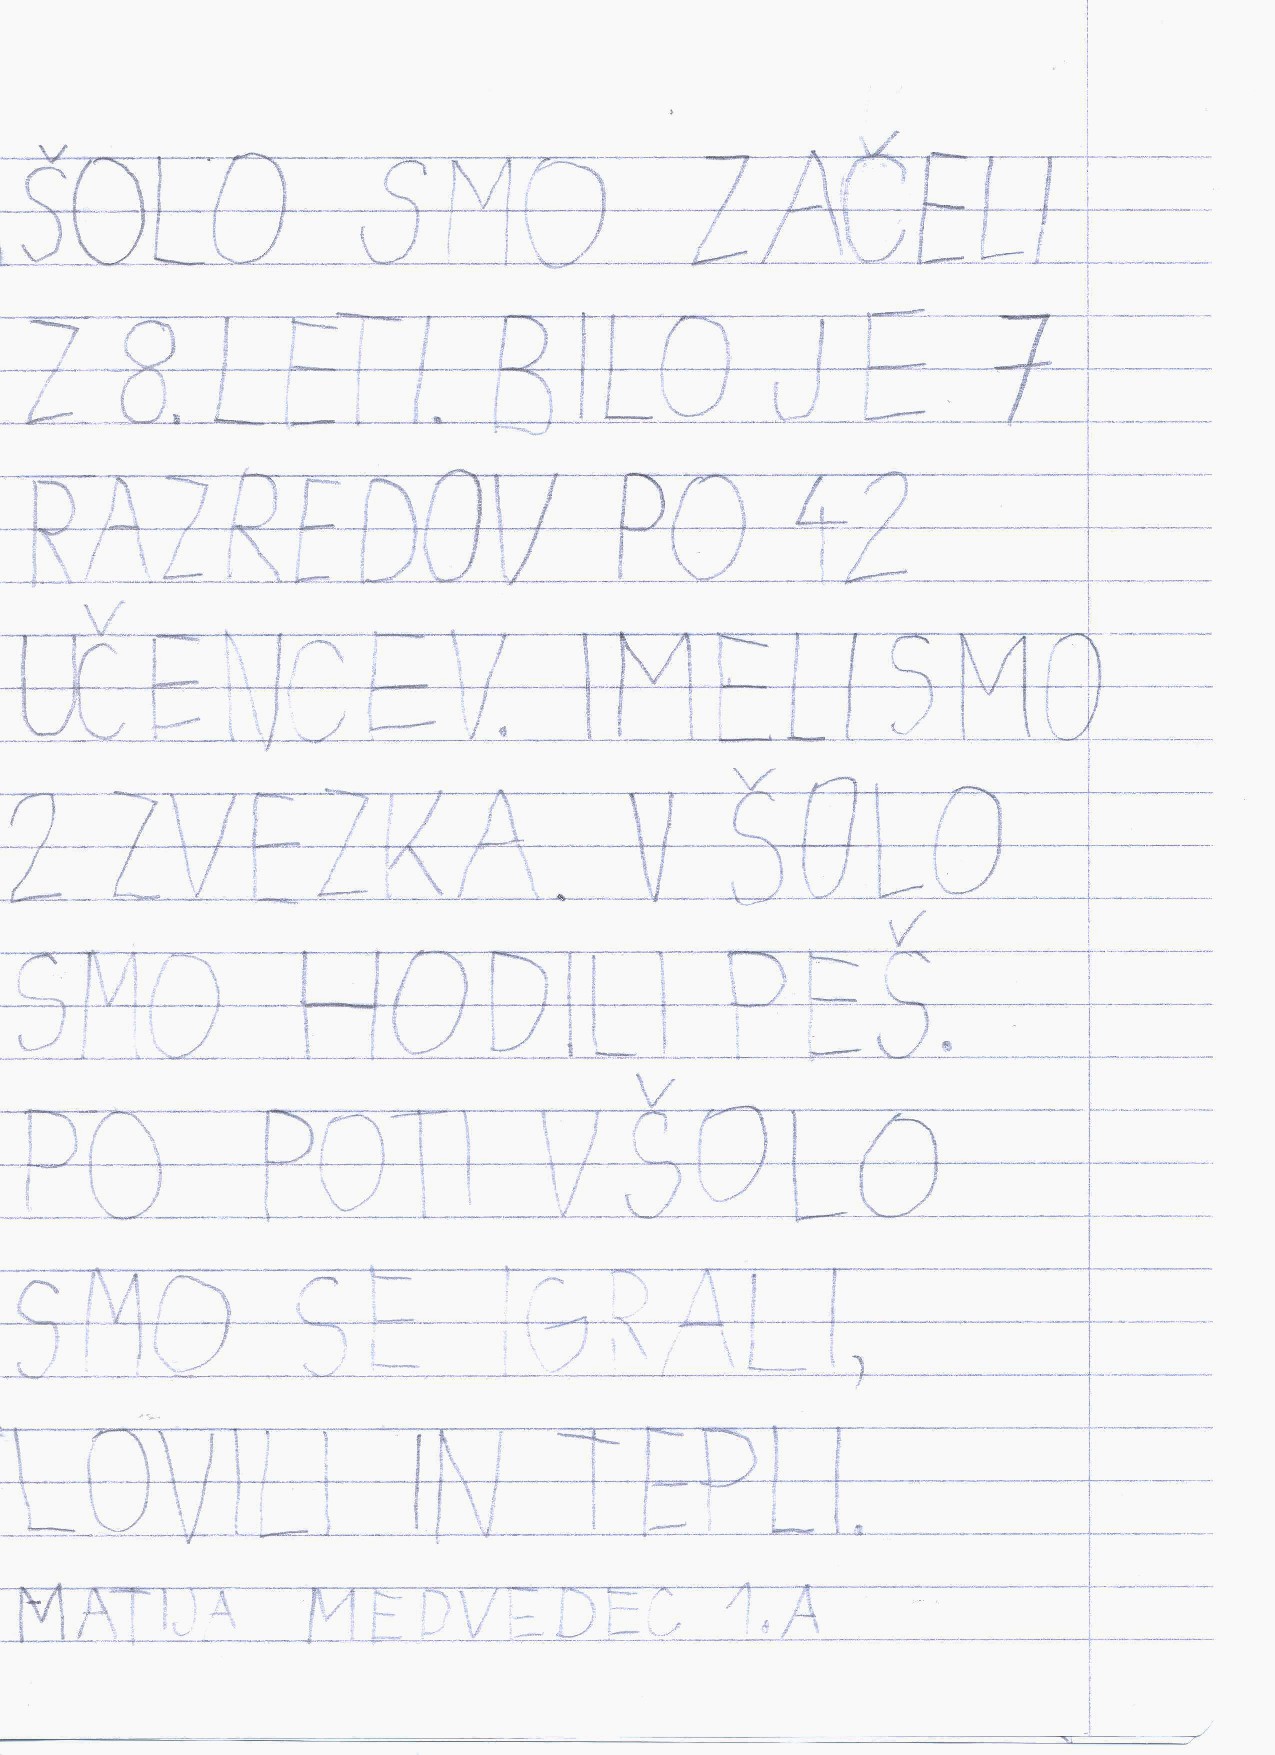 ŠOLO SMO ZAČELI
Z 8. LETI. BILO JE 7
RAZREDOV PO 42
UČENCEV. IMELI SMO
2 ZVEZKA. V ŠOLO
SMO HODILI PEŠ.
PO POTI V ŠOLO
SMO SE IGRALI,
LOVILI IN TEPLI.
MATIJA MEDVEDEC 1.A